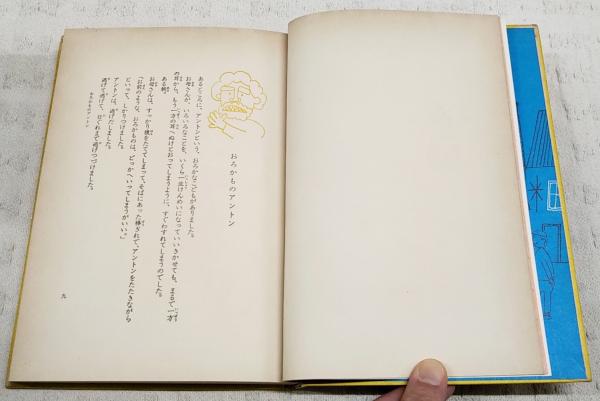 おろかものアントン
あるところに、アントンという、おろかなこどもがありました。
お母さんが、いろいろなことを、いくら一生けんめいになっていいきかせても、まるで一方
の耳から、もう一方の耳へぬけとおってしまうように、すぐわすれてしまうのでした。
ある朝、
お母さんは、すっかり腹をたててしまって、そばにあった棒ぎれで、アントンをたたきながら
「お前のような、おろかものは、どっかへいってしまうがいい。」
といって、しかりつけました。
アントンは、逃げだしました。
逃げて逃げて、ひぐれまで逃げつづけました。
おろかものアントン
九